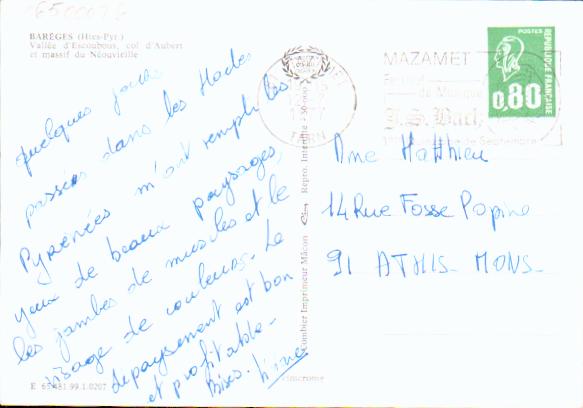 650002
BARÈGES (Htes-Pyr.)
Vallée d'Escoubous, col d'Aubert
et massif du Néouvielle
quelques jours
passés dans les Hautes
Pyrénées m'ont rempli les
yeux de beaux paysages,
les jambes de muscles et le
visage de couleurs. Le
depaysement est bon
et profitable -
Bises.
E 65.481.99.1.0207
Combier Imprimeur Mâcon
Repro. Interdite
TARN
MAZAMET
Festival
de Musique
J.S. Bach
Septembre
POSTES
REPUBLIQUE FRANÇAISE
0,80
Mme Matthieu
14 Rue Fosse Popine
91 ATHIS-MONS-